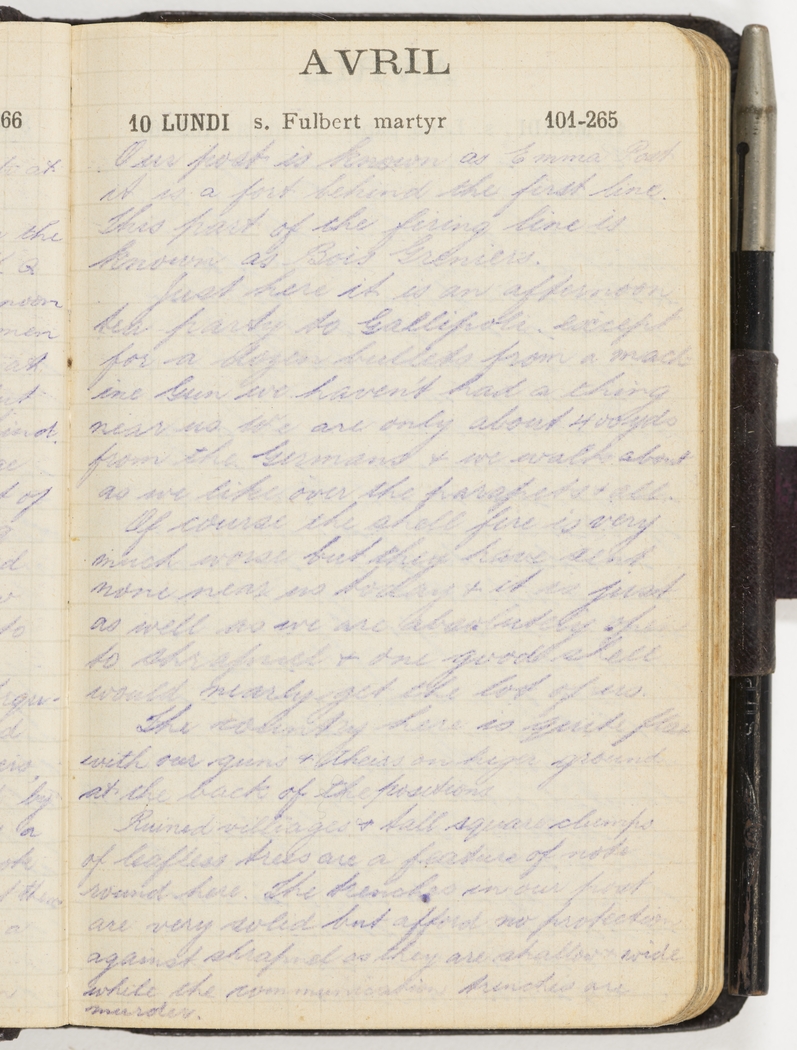 AVRIL
66
10 LUNDI s. Fulbert martyr 101-265
Our post is known as Emma Post
it is a fort behind the first line.
This part of the firing line is
known as Bois Greniers.
Just here it is an afternoon
tea party to Gallipoli. except
for a dozen bullets from a mach
ine Gun we havent had a thing
near us We are only about 400yds
from the Germans + we walk about
as we like over the parapets + all.
Of course the shell fire is very
much worse but they have sent
none near us today + it is just
as well as we are absolutely open
to shrapnel + one good shell
would nearly get the lot of us.
The country here is quite flat
with our guns + theirs on higer ground
at the back of the positions
Ruined villiages + tall square clumps
of leafless trees are a feature of note
round here. The trenches in our post
are very solid but afford no protection
against shrapnel as they are shallow + wide
while the communication trenches are
murder.